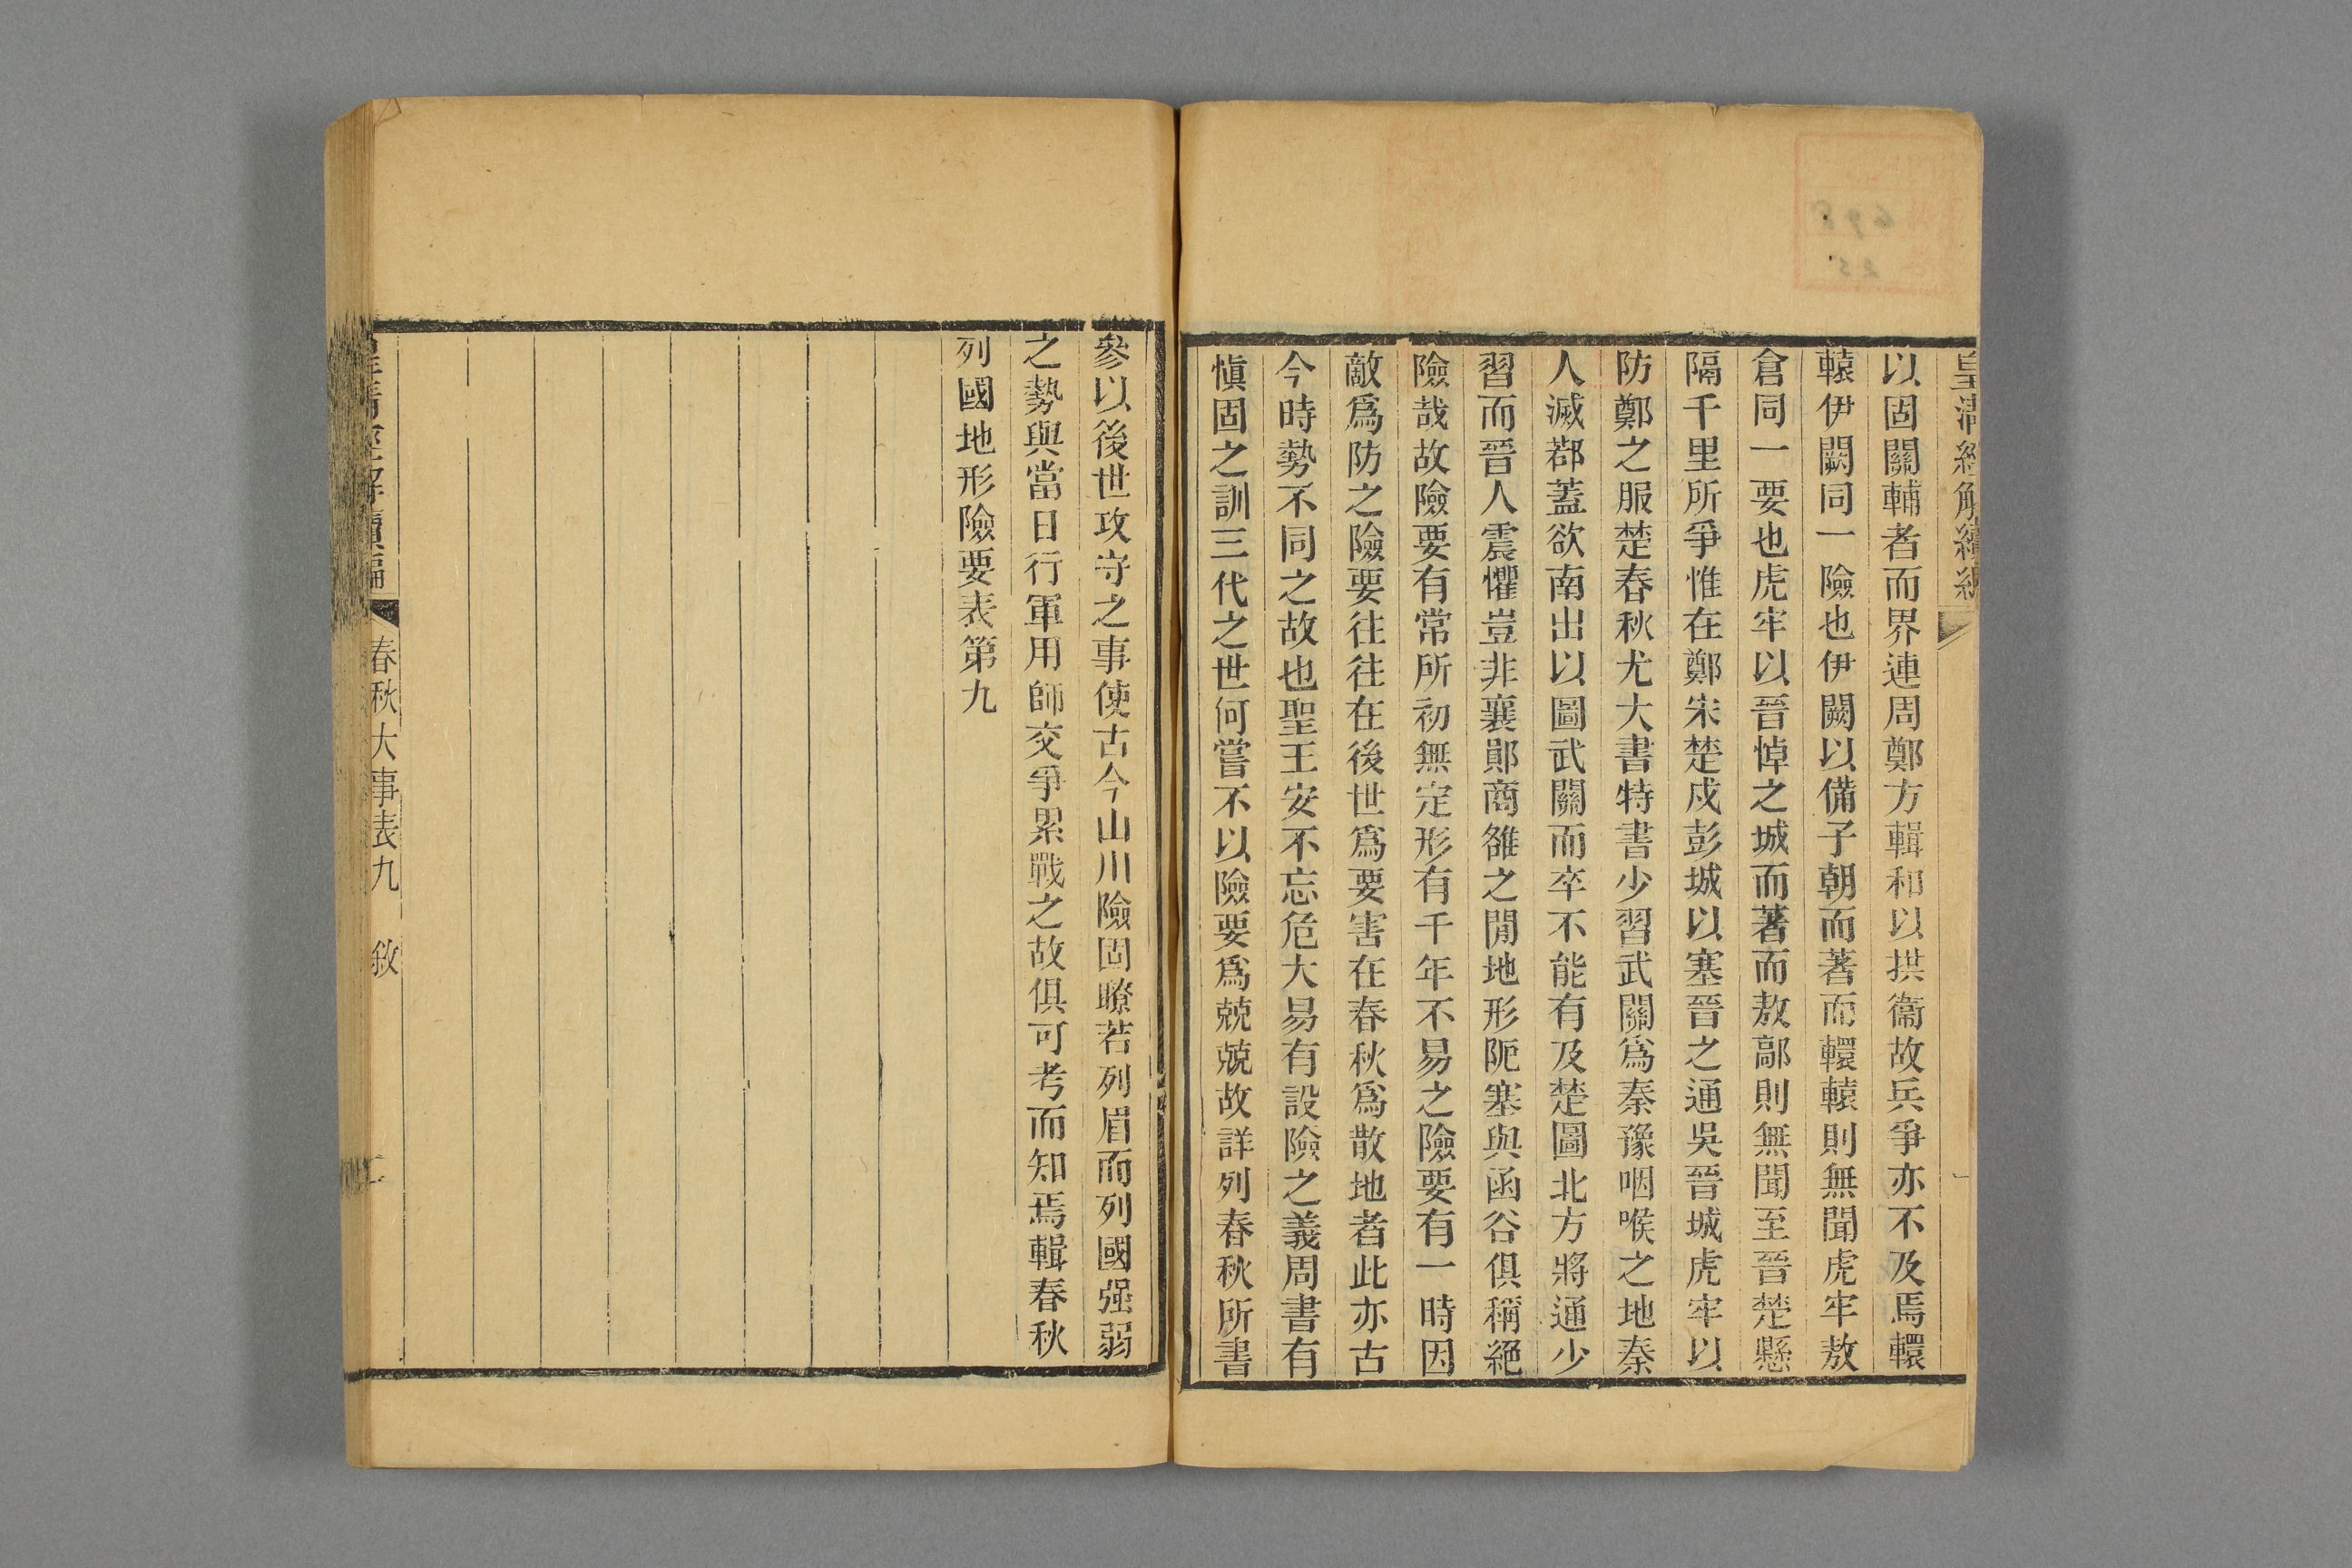 皇清經解續編
一
以固關輔者而界連周鄭方輯和以拱衞故兵爭亦不及焉轘
轅伊闕同一險也伊闕以備子朝而著而轘轅則無聞虎牢敖
倉同一要也虎牢以晉悼之城而著而敖鄗則無聞至晉楚懸
隔千里所爭惟在鄭宋楚戍彭城以塞晉之通吳晉城虎牢以
防鄭之服楚春秋尤大書特書少習武關爲秦豫咽喉之地秦
人滅鄀蓋欲南出以圖武關而卒不能有及楚圖北方將通少
習而晉人震懼豈非襄鄖商雒之閒地形阨塞與函谷俱稱絕
險哉故險要有常所初無定形有千年不易之險要有一時因
敵爲防之險要往往在後世爲要害在春秋爲散地者此亦古
今時勢不同之故也聖王安不忘危大易有設險之義周書有
愼固之訓三代之世何嘗不以險要爲兢兢故詳列春秋所書
參以後世攻守之事使古今山川險固瞭若列眉而列國强弱
之勢與當日行軍用師交爭累戰之故俱可考而知焉輯春秋
列國地形險要表第九
皇清經解續編
春秋大事表九 敘
二